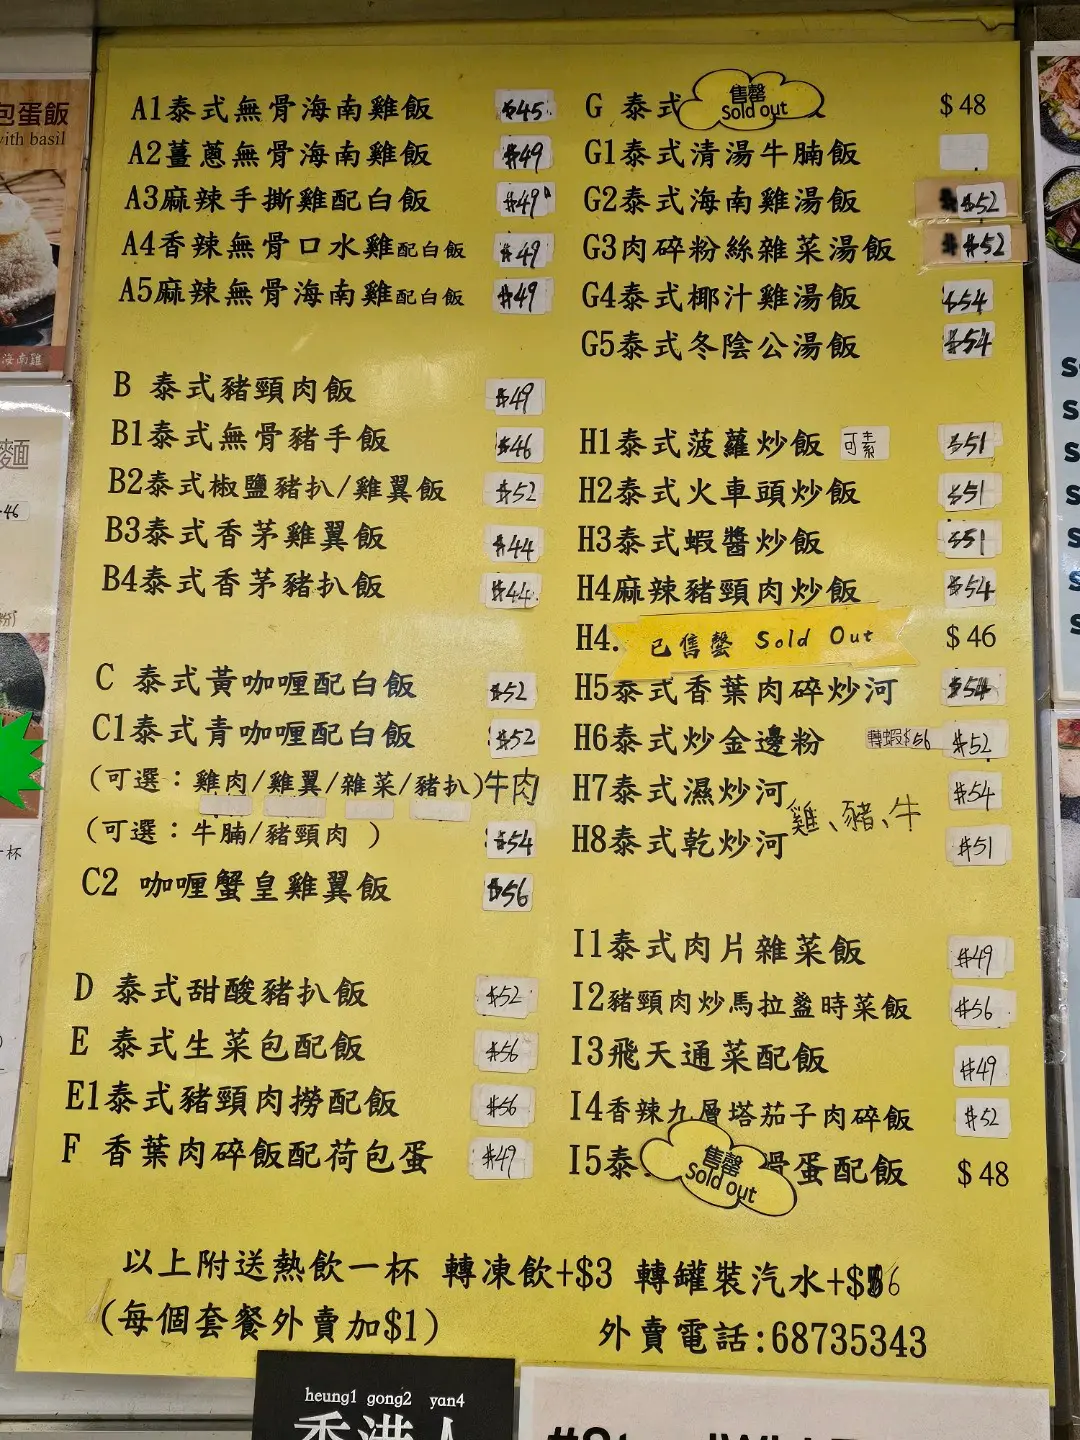 A1泰式無骨海南雞飯 $45
A2薑蔥無骨海南雞飯 $49
A3麻辣手撕雞配白飯 $49
A4香辣無骨口水雞配白飯 $49
A5麻辣無骨海南雞配白飯 $49
B 泰式豬頸肉飯 $49
B1泰式無骨豬手飯 $46
B2泰式椒鹽豬扒/雞翼飯 $52
B3泰式香茅雞翼飯 $44
B4泰式香茅豬扒飯 $44
C 泰式黃咖喱配白飯 $52
C1泰式青咖喱配白飯 $52
(可選：雞肉/雞翼/雜菜/豬扒)牛肉
(可選：牛腩/豬頸肉 ) $54
C2 咖喱蟹皇雞翼飯 $56
D 泰式甜酸豬扒飯 $52
E 泰式生菜包配飯 $56
E1泰式豬頸肉撈配飯 $56
F 香葉肉碎飯配荷包蛋 $49
G 泰式 售罄 Sold out $48
G1泰式清湯牛腩飯
G2泰式海南雞湯飯 $52
G3肉碎粉絲雜菜湯飯 $52
G4泰式椰汁雞湯飯 $54
G5泰式冬陰公湯飯 $54
H1泰式菠蘿炒飯 可素 $51
H2泰式火車頭炒飯 $51
H3泰式蝦醬炒飯 $51
H4麻辣豬頸肉炒飯 $54
H4. 已售罄 Sold Out $46
H5泰式香葉肉碎炒河 $54
H6泰式炒金邊粉 轉蝦$56 $52
H7泰式濕炒河 $54
雞、豬、牛
H8泰式乾炒河 $51
I1泰式肉片雜菜飯 $49
I2豬頸肉炒馬拉盞時菜飯 $56
I3飛天通菜配飯 $49
I4香辣九層塔茄子肉碎飯 $52
I5泰 售罄 Sold out 蛋配飯 $48
以上附送熱飲一杯 轉凍飲+$3 轉罐裝汽水+$6
(每個套餐外賣加$1)
外賣電話:68735343
包蛋飯
with basil
海南雞
麵
46
杯
heung1 gong2 yan4
香港人